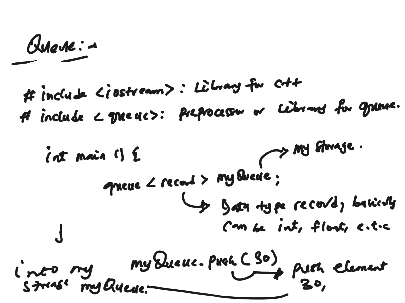 Queue:-
# include <iostream>: Library for c++
# include <queue>: preprocessor or library for queue.
int main () {
my storage.
queue <record> myQueue;
Data type record, basically
can be int, float, e.t.c
myQueue.push(30)
push element
30,
into my
storage myQueue.